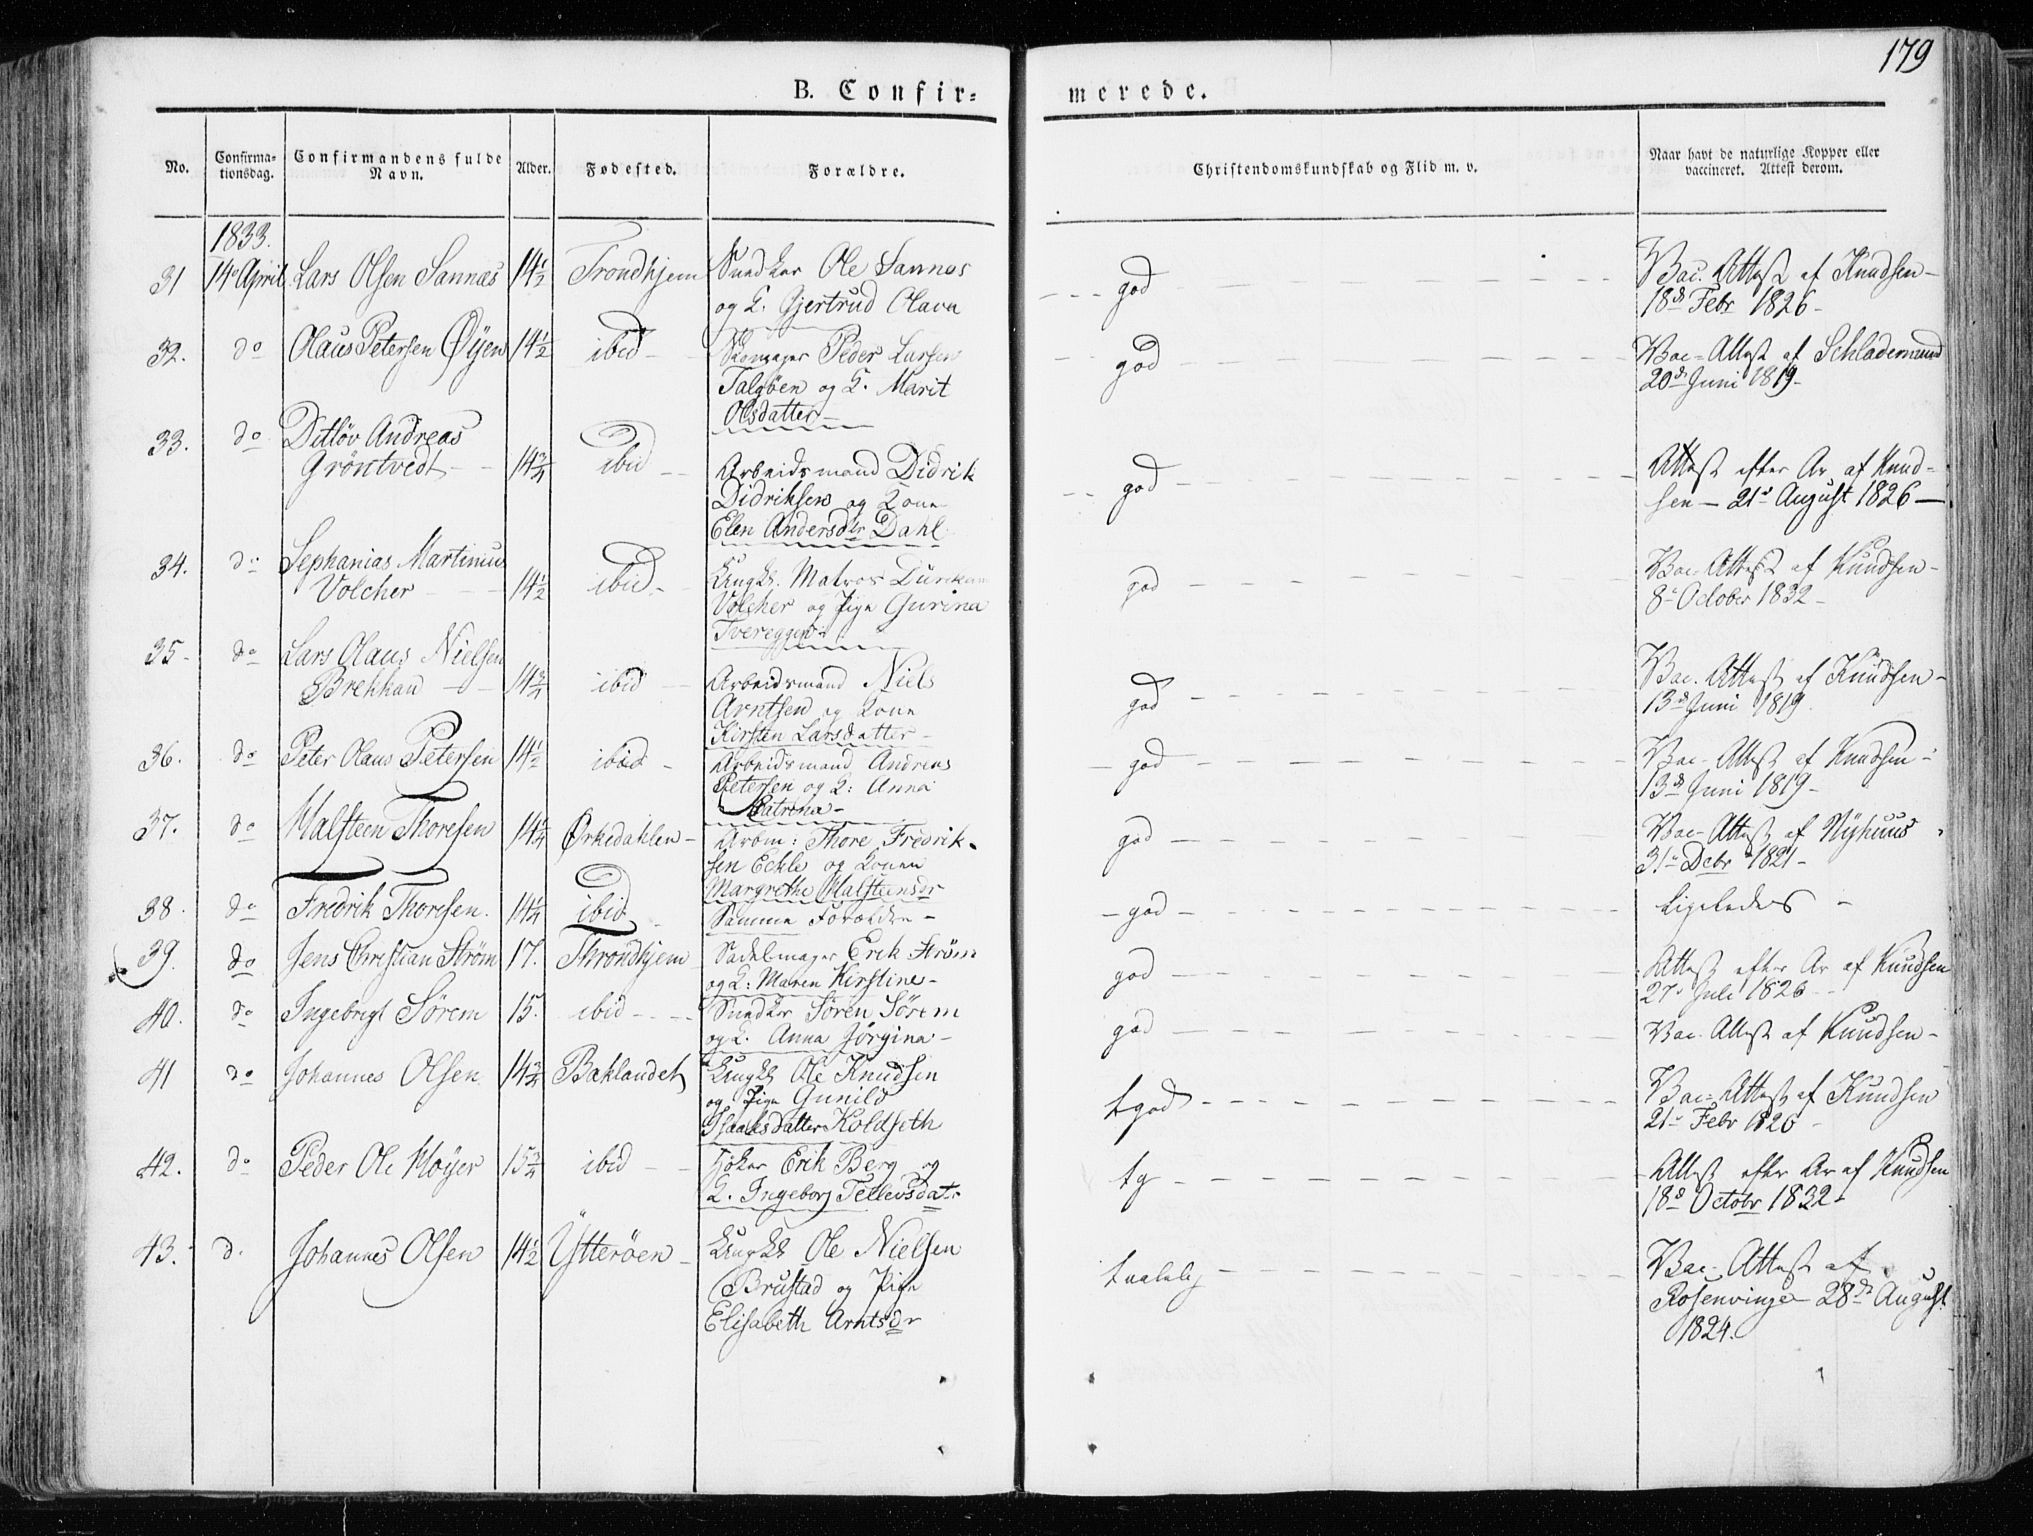 179
B. Confir=
merede.
No.
Confirma-
tionsdag.
Confirmandens fulde
Navn.
Alder.
Fødested.
Forældre.
Christendomskundskab og Flid m. v.
Naar havt de naturlige Kopper eller
vaccineret. Attest derom.
1833.
31 14de April Lars Olsen Sannæs 14½ Trondhjem Sundkar Ole Sannæs
og K. Gjertrud Olava
god
Vac. Attest af Knudsen
18de Febr 1826-
32. do Olaus Petersen Øyen 14½ ibid Skomager Peder Larsen
Talgøen og K. Marit
Olsdatter
god
Vac-Attest af Schlademund
20de Juni 1819-
33. do Ditløv Andreas
Grøntvedt 14¾ ibid Arbeidsmand Didrik
Didriksen og Kone
Elen Andersdtr Dahl
god
Attest efter Ar af Knud-
sen - 21de August 1826
34. do Sephanias Martinus
Volcher 14½ ibid Ungkl. Matros
Volcher og Pige Gurina
Tvereggen
god
Vac-Attest af Knudsen
8de October 1832
35- do Lars Olaus Nielsen
Brekkan 14¾ ibid Arbeidsmand Niels
Arntsen og Kone
Kirsten Larsdatter
god
Vac. Attest af Knudsen
13de Juni 1819.
36. do Peter Olaus Petersen 14½ ibid Arbeidsmand Andreas
Petersen og K: Anna
Catrina-
god
Vac-Attest af Knudsen
13de Juni 1819-
37. do Halsteen Thoresen 14¼ Ørkedahlen Arbm: Thore Fredrik-
sen Eckle og Konen
Margrethe Halsteensdr
god
Vac-Attest af Nyhuus
31de Debr 1821-
38. do Fredrik Thoresen. 14¼ ibid Samme Forældre-
god
Ligeledes
39. do Jens Christian Strøm 17. Throndhjem Sadelmager Erik Strøm
og K: Maren Kirstine-
god
Attest efter Ar af Knudsen
27de Juli 1826
40. do Ingebrigt Sörem 15. ibid Sundkar Sören Sörem
og K. Anna Jörgina-
god
Vac. Attest af Knudsen-
41 do Johannes Olsen 14¾ Baklandet Ungkl Ole Knudsen
og Pige Gunild
Isaaksdatter Koldseth
tgod
Vac-Attest af Knudsen
21de Febr 1826
42. do Peder Ole Høyer 15¾ ibid Høker Erik Berg og
K. Ingeborg Tellevsdatr
tg
Attest efter Ar af Knudsen
18de Octobr 1832-
43. d. Johannes Olsen 14½ Ytterøen Ungkl Ole Nielsen
Brustad og Pige
Elisabeth Arntsdr
taalelig
Vac-Attest af
Rosenvinge 28de August
1824.